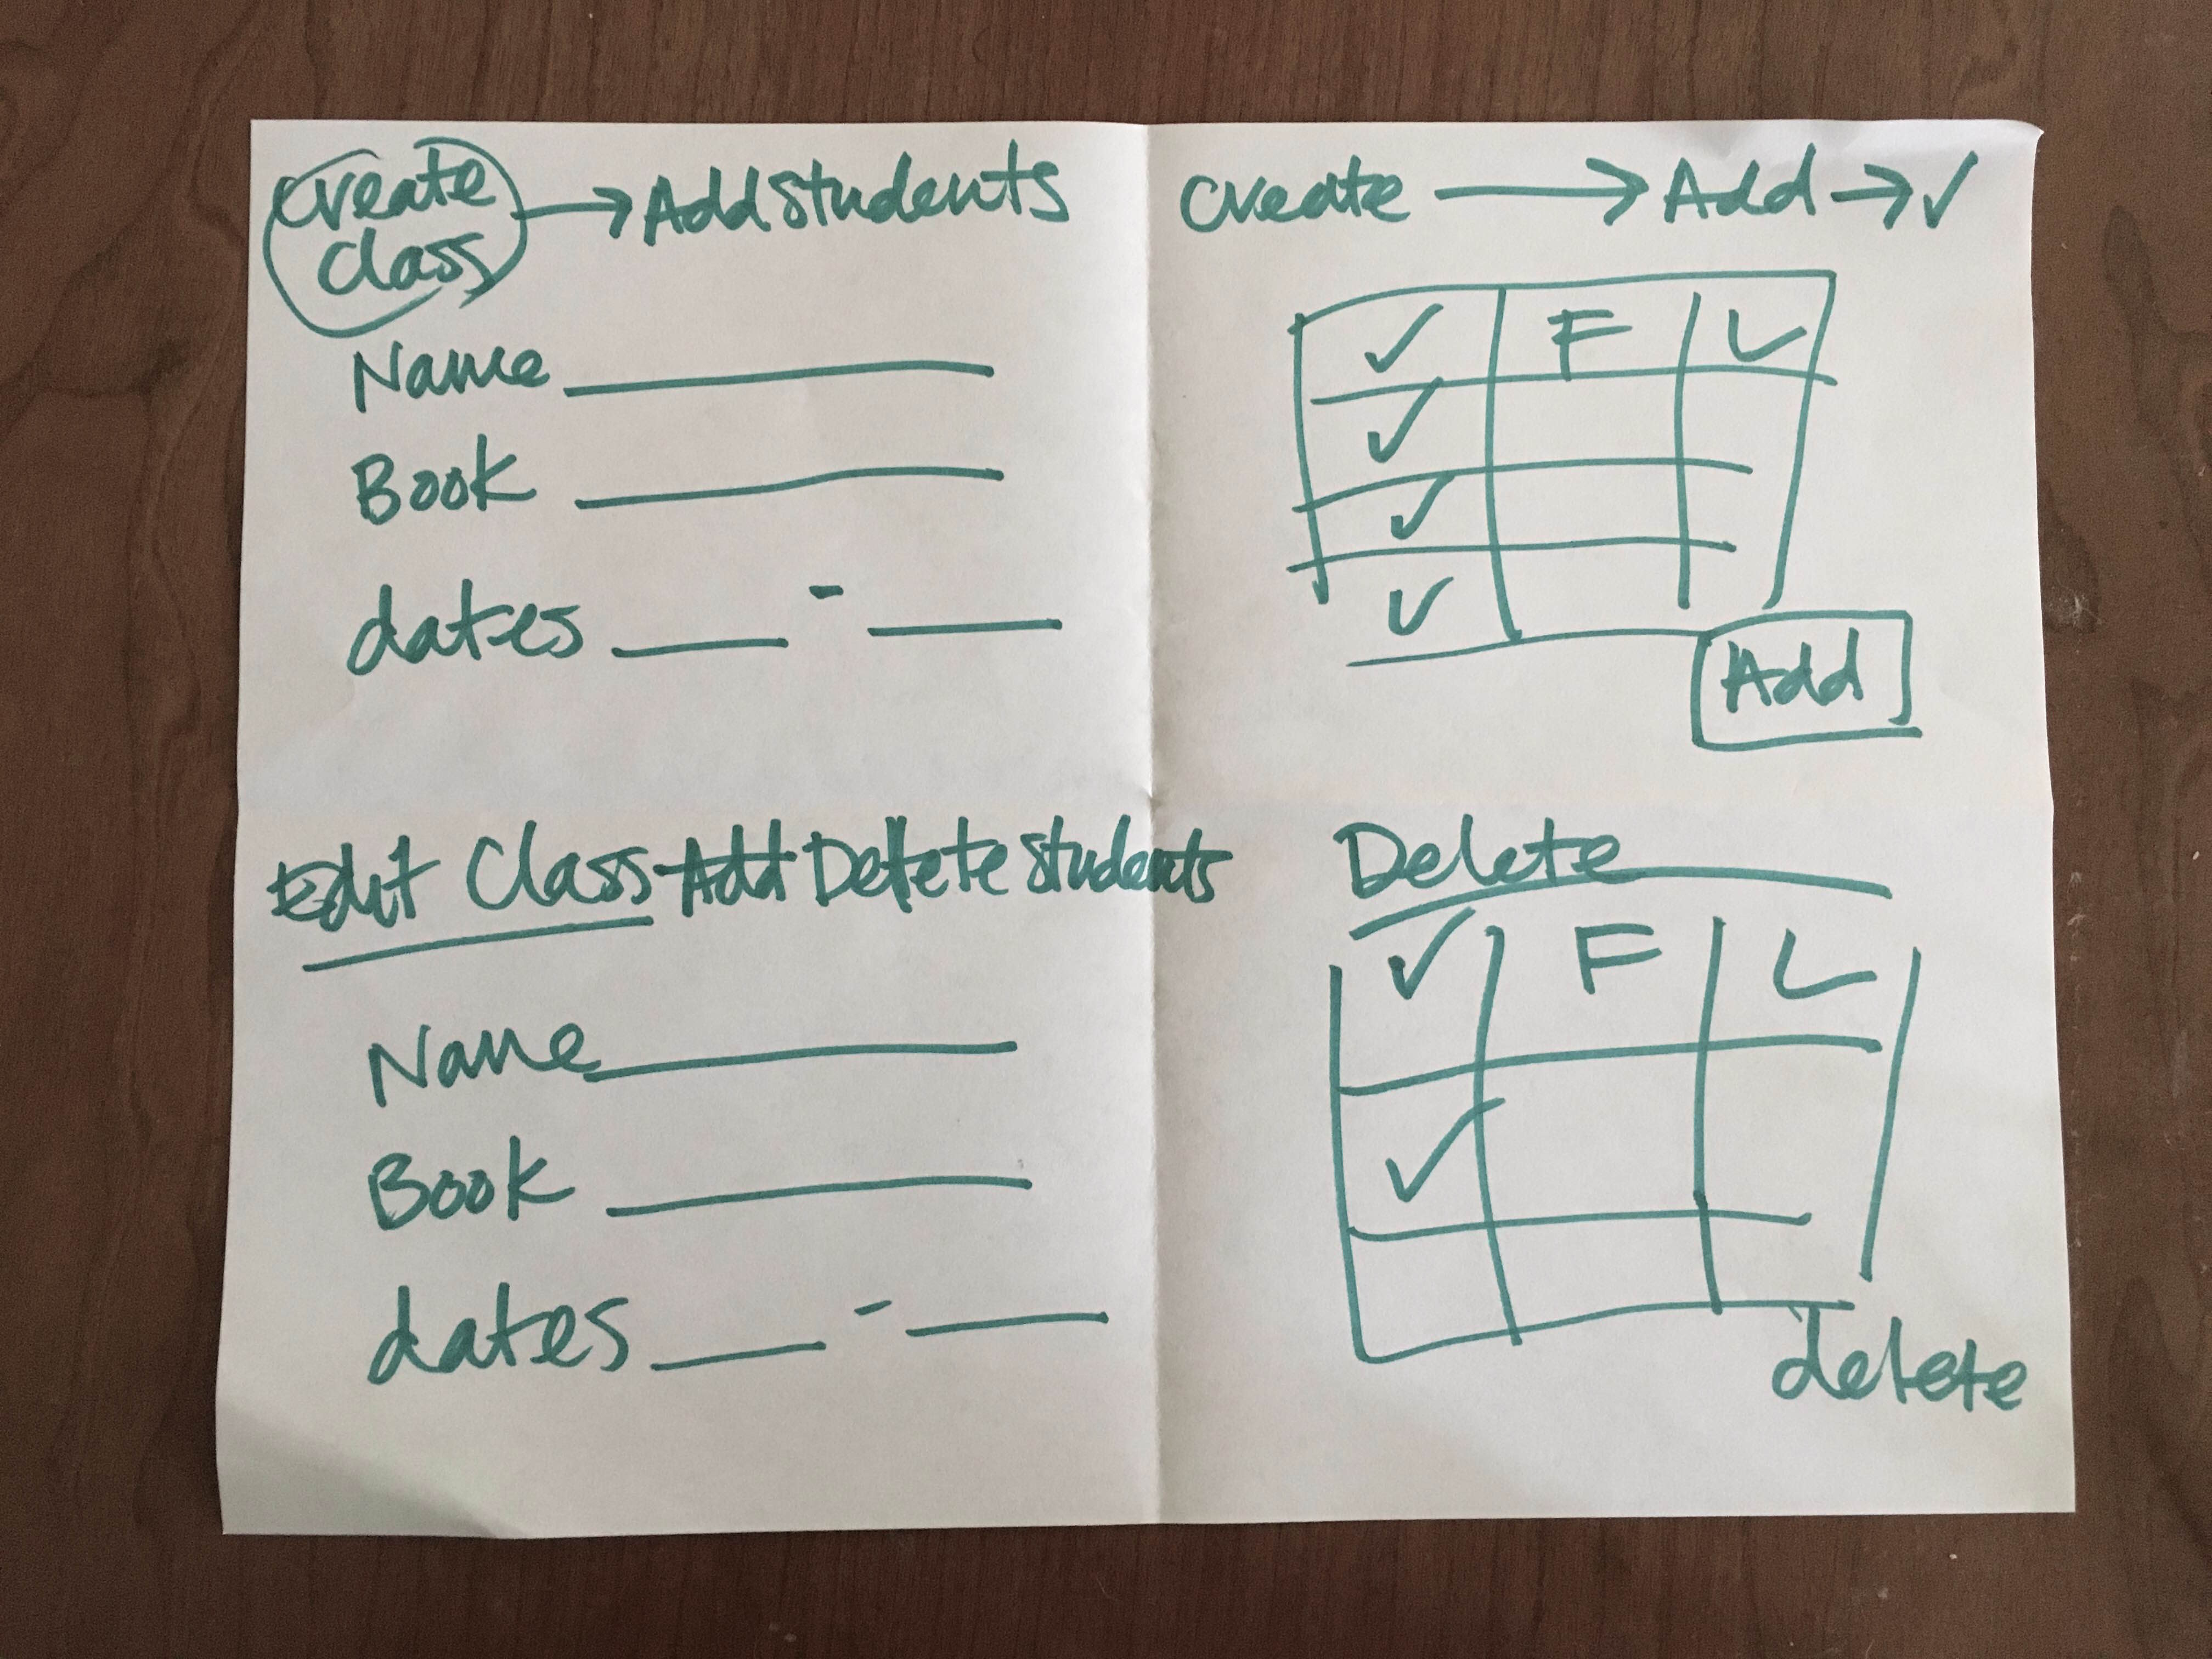 Create class → Add Students
Name
Book
dates -
Create → Add → ✓
✓ F L
✓
✓
✓
Add
Edit Class Add Delete Students
Name
Book
dates -
Delete
✓ F L
✓
delete